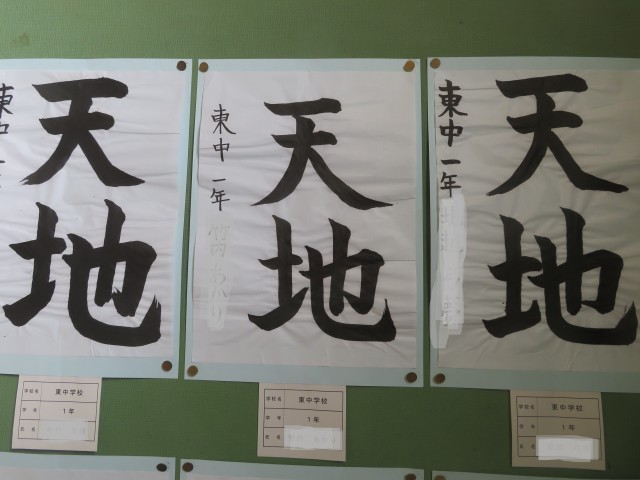 天地
東中一
天地
東中 一年
天地
東中一年
学校名 東中学校
学年 1年
氏名
学校名 東中学校
学年 1年
氏名
学校名 東中学校
学年 1年